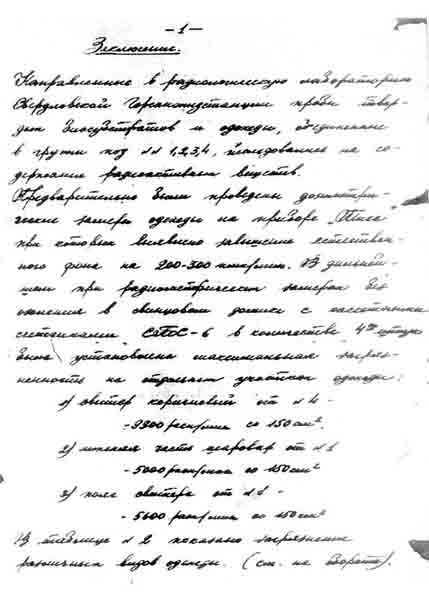 -1-
Заключение.
Направленные в радиологическую лабораторию
Свердловской Горсанэпидстанции пробы твер-
дых биосубстратов и одежды, объединенные
в группы под №№ 1,2,3,4, исследованные на со-
держание радиоактивных веществ.
Предварительно были проведены дозиметри-
ческие замеры одежды на приборе
при которых выявлено завышение естествен-
ного фона на 200-300 имп/мин. В дальней-
шем при радиометрических замерах без
озоления в свинцовом домике с кассетными
счетчиками СТС-6 в количестве 4х штук
была установлена максимальная загряз-
ненность на отдельных участках одежды:
1) свитер коричневый от №4 -
-9900 расп/мин со 150 см².
2) нижняя часть шаровар от №1
-5000 расп/мин со 150 см²
3) пояс свитера от №1 -
-5600 расп/мин со 150 см²
В таблице №2 показано загрязнение
различных видов одежды. (см. на обороте).